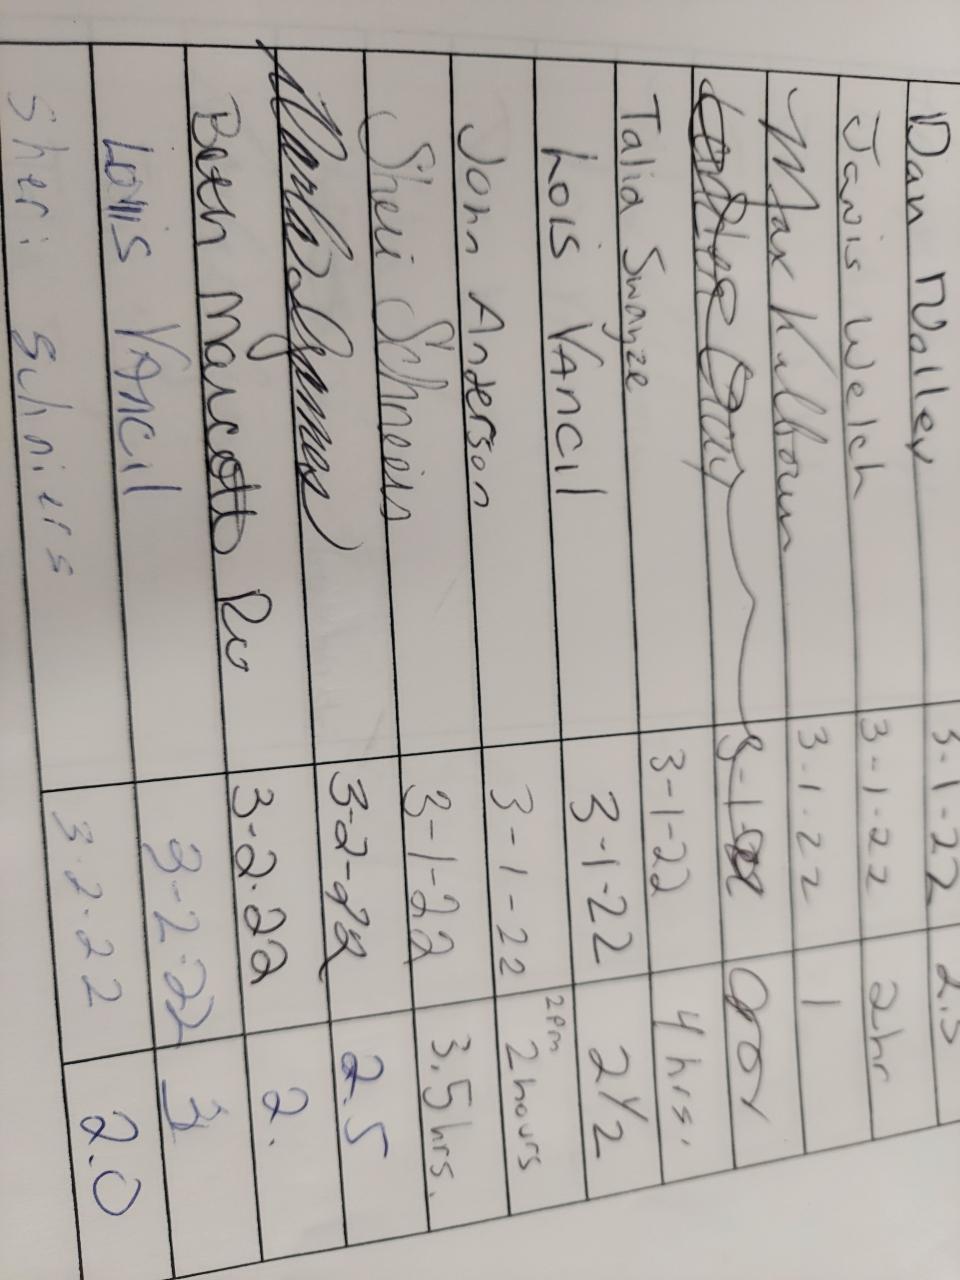 Dan Nalley 3-1-22 2.5
Janis Welch 3-1-22 2hr
Max Kilbourn 3.1.22 1
Talia Swayze 3-1-22 4 hrs.
Lois VAncil 3-1-22 2 1/2
John Anderson 3-1-22 2pm 2 hours
Sheri Schneiss 3-1-22 3.5 hrs.
3-2-22 2.5
Beth Marcotte RN 3-2-22 2.
Lois VAncil 3-2-22 3
Sheri Schniers 3.2.22 2.0